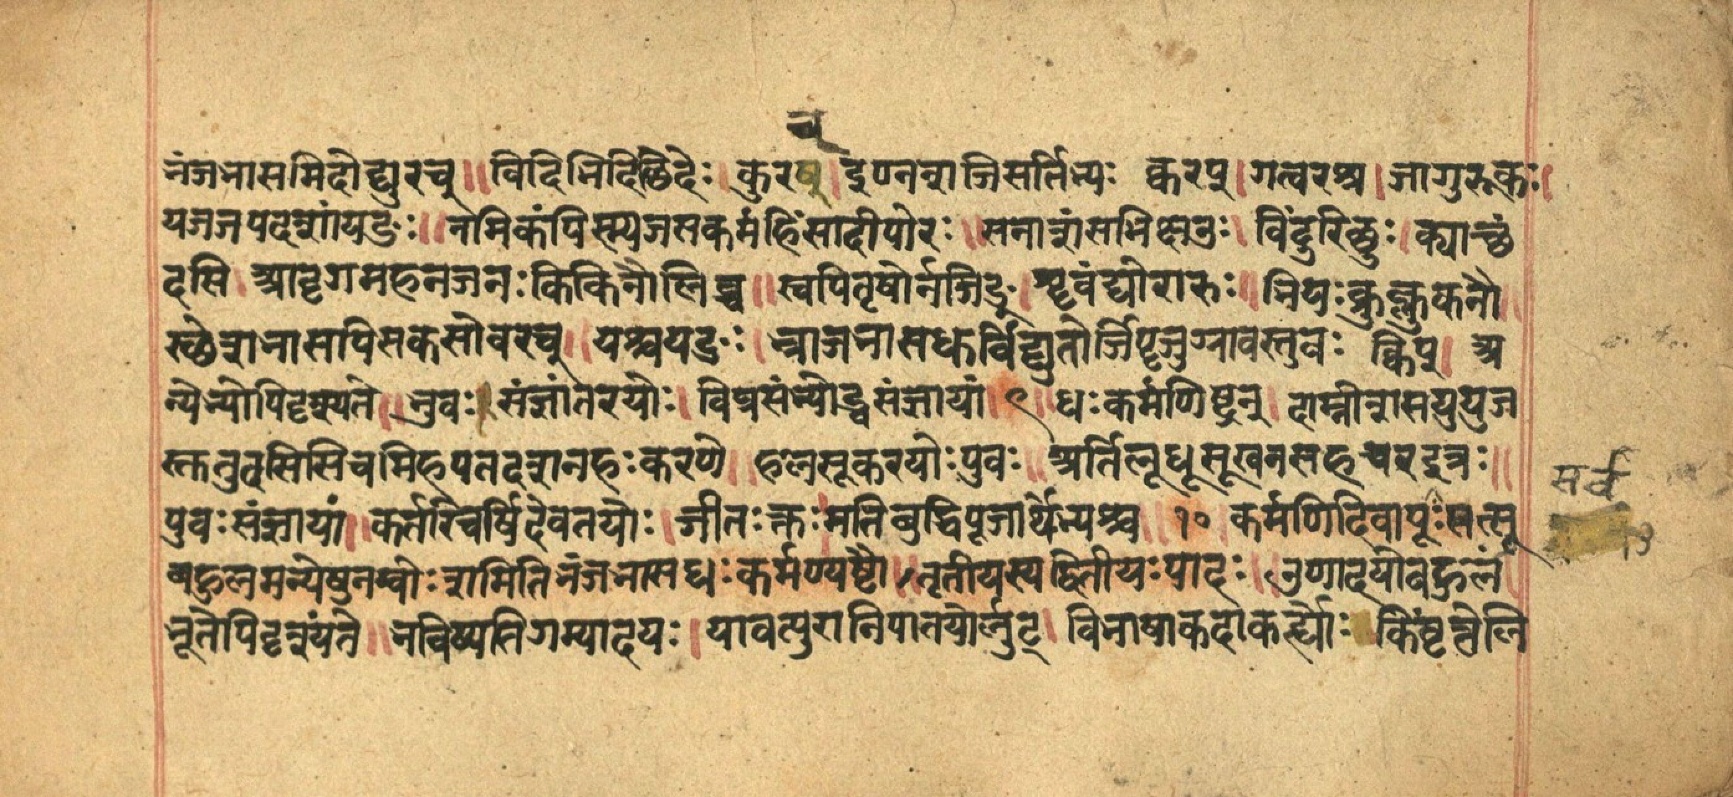 च्
नंजभासमिदोद्युरच् ॥ विदिभिदिछिदेः कुरष् । इण्नशजिसर्तिभ्यः क्वरप् । गत्वरश्च । जागुरूकः ।
यजजपदशांयङः ॥ नमिकंपिस्म्यजसकमहिंसादीपोरः ॥ सनाशंसभिक्षउः । विंदुरिछुः । क्याछं
दसि । आदृगमहनजनः किकिनौलिट्च ॥ स्वपितृषोर्नजिङ् । शॄवंद्योरारुः ॥ भियः क्रुक्लुकनौ ॥
स्छेशभासपिसकसोवरच् । यश्चयङः । भ्राजभासधुर्विद्युतोर्जिपॄजुग्रावस्तुवः क्विप् । अ
न्येभ्योपिदृश्यते । भुवः संज्ञांतरयोः । विप्रसंभ्योड्वसंज्ञायां । ९ । धः कर्मणिष्ट्रन् । दाम्नीशसयुयुज
स्तुतुदसिसिचमिहपतदशनहः करणे । हलसूकरयोः पुवः ॥ अर्तिलूधूसूखनसहचरइत्रः ॥
पुवः संज्ञायां । कर्तरिचर्षिदेवतयोः । ञीतः क्तः मतिबुद्धिपूजार्थेभ्यश्च ॥ १० कर्मणिदिवापूः सत्सू
बहुलमन्येषुनम्वोः शमितिनंजभासधः कर्मण्यष्टौ ॥ तृतीयस्यद्वितीयः पादः ॥ उणादयोबहुलं
भूतेपिदृश्यंते ॥ भविष्यतिगम्यादयः । यावत्पुरानिपातयोर्लट् । विभाषाकदाकर्ह्योः किंवृत्तेलि
सर्व